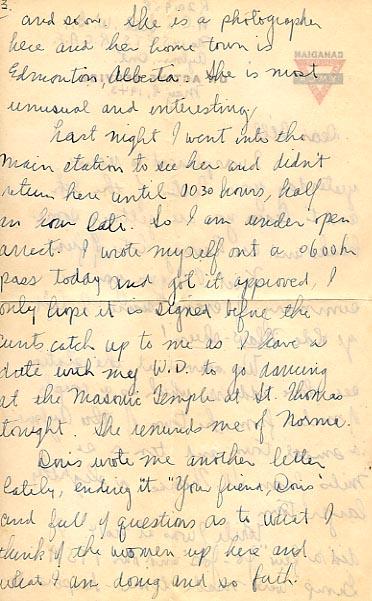 3.
and so on. She is a photographer
here and her home town is
Edmonton, Alberta. She is most
unusual and interesting.
Last night I went into the
main station to see her and didn't
return here until 0030 hours, half
an hour late. So I am under open
arrest. I wrote myself out a 0600 hr
pass today and got it approved, I
only hope it is signed before the
catch up to me as I have a
date with my W.D. to go dancing
at the Masonic Temple at St. Thomas
tonight. She reminds me of Norma.
Doris wrote me another letter
lately, ending it "Your friend, Doris"
and full of questions as to what I
think of the women up here and
what I am doing and so forth.
CANADIAN